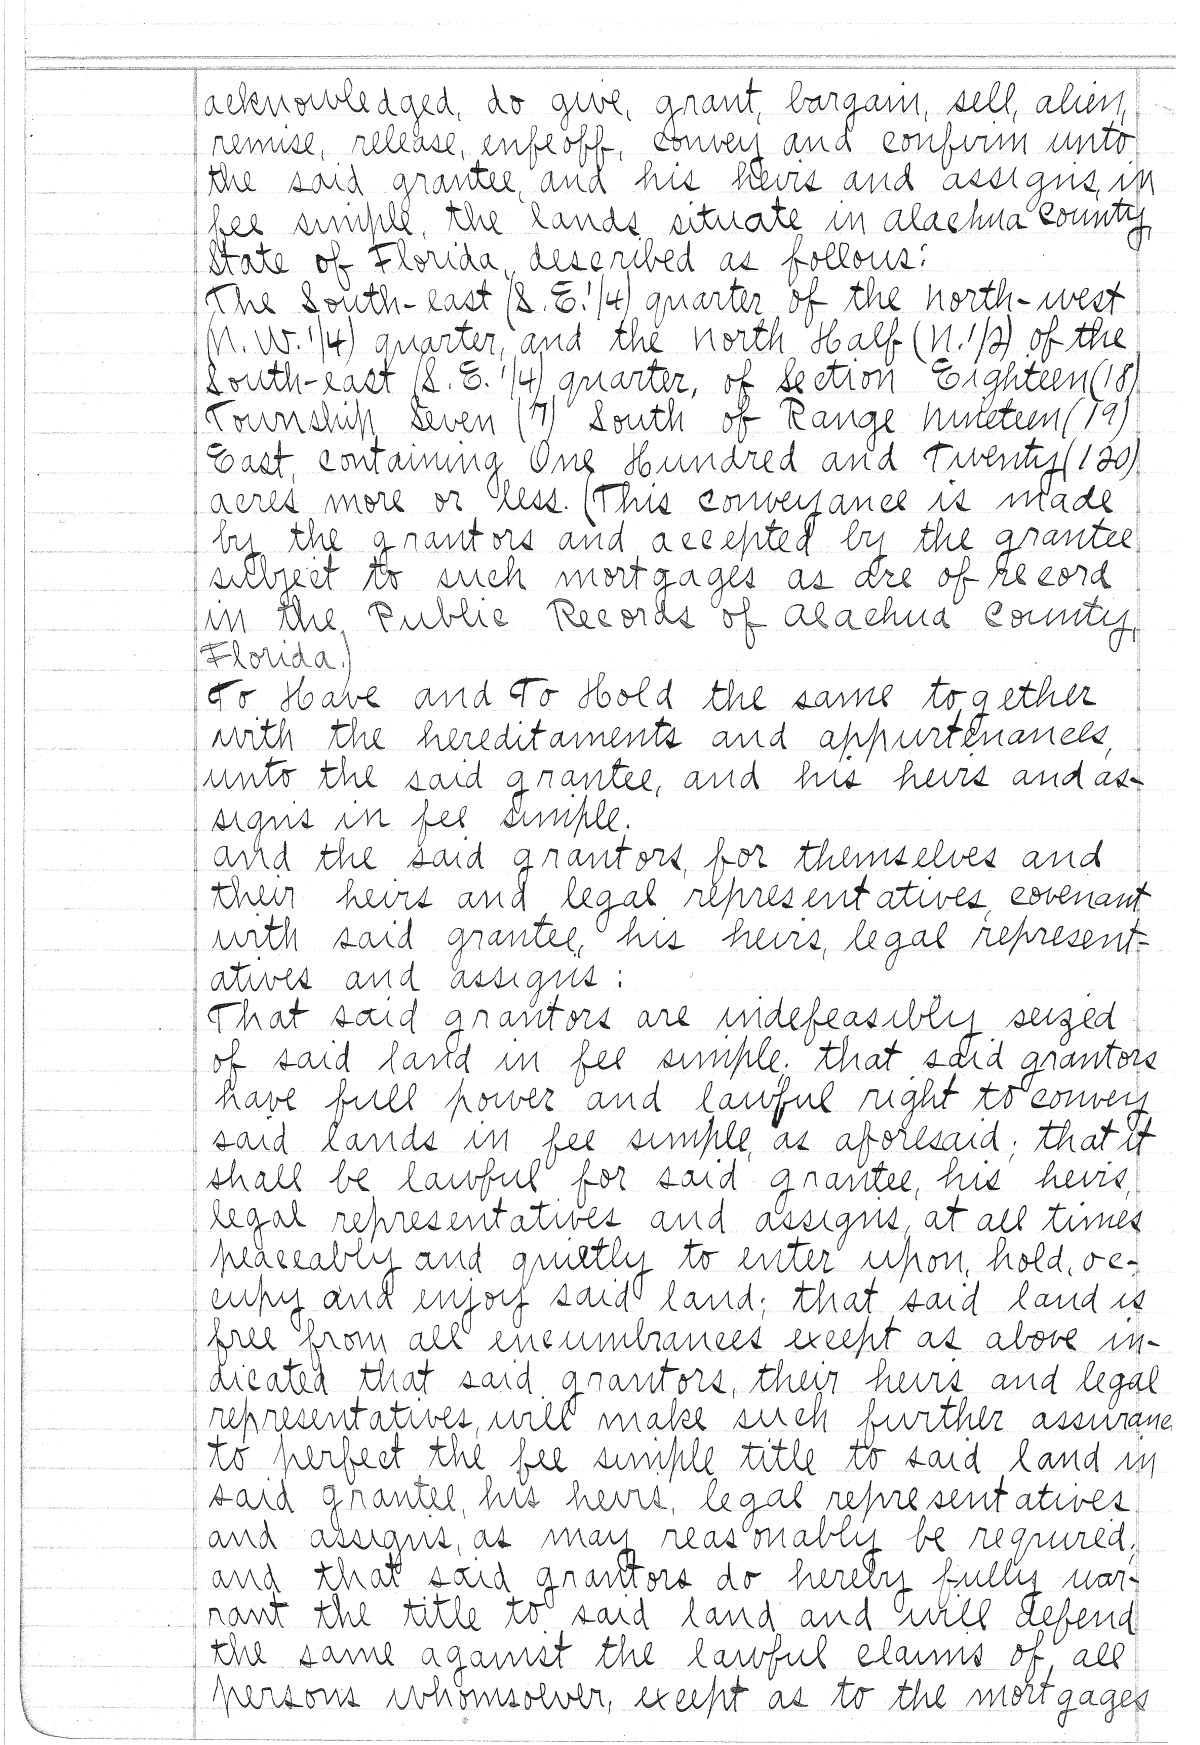 acknowledged, do give, grant, bargain, sell, alien,
remise, release, enfeoff, convey and confirm unto
the said grantee, and his heirs and assigns, in
fee simple, the lands situate in Alachua County,
State of Florida, described as follows:
The South-east (S.E.1/4) quarter of the north-west
(N.W.1/4) quarter, and the North Half (N.1/2) of the
South-east (S.E.1/4) quarter, of Section Eighteen(18)
Township Seven (7) South of Range Nineteen(19)
East, containing One Hundred and Twenty(120)
acres more or less. (This conveyance is made
by the grantors and accepted by the grantee
subject to such mortgages as are of record
in the Public Records of Alachua County,
Florida.)
To Have and To Hold the same together
with the hereditaments and appurtenances,
unto the said grantee, and his heirs and as-
signs in fee simple.
And the said grantors, for themselves and
their heirs and legal representatives, covenant
with said grantee, his heirs, legal represent-
atives and assigns:
That said grantors are indefeasibly seized
of said land in fee simple; that said grantors
have full power and lawful right to convey
said lands in fee simple, as aforesaid; that it
shall be lawful for said grantee, his heirs,
legal representatives and assigns, at all times
peaceably and quietly to enter upon, hold, oc-
cupy and enjoy said land; that said land is
free from all encumbrances except as above in-
dicated that said grantors, their heirs and legal
representatives, will make such further assurance
to perfect the fee simple title to said land in
said grantee, his heirs, legal representatives
and assigns, as may reasonably be required;
and that said grantors do hereby fully war-
rant the title to said land and will defend
the same against the lawful claims of all
persons whomsoever, except as to the mortgages